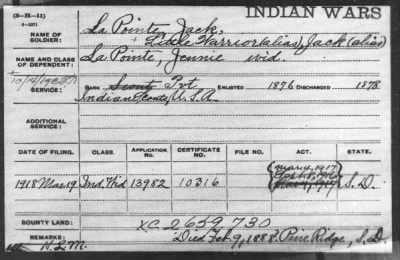 (3-H-11)
INDIAN WARS
4-2271
NAME OF SOLDIER: La Pointe, Jack,
+ Little Warrior (alias), Jack (alias)
NAME AND CLASS OF DEPENDENT: La Pointe, Jennie wid.
SERVICE: RANK Scout Pvt ENLISTED 1876 DISCHARGED 1878
Indian Scouts, U.S.A.
ADDITIONAL SERVICE:
DATE OF FILING. CLASS. APPLICATION NO. CERTIFICATE NO. FILE NO. ACT. STATE.
1918 Mar. 19 Ind. Wid 13982 10316 (Mar 4, 1917) S.D.
BOUNTY LAND: XC 2659 730
REMARKS: Died Feb 9, 1888. Pine Ridge, S.D.